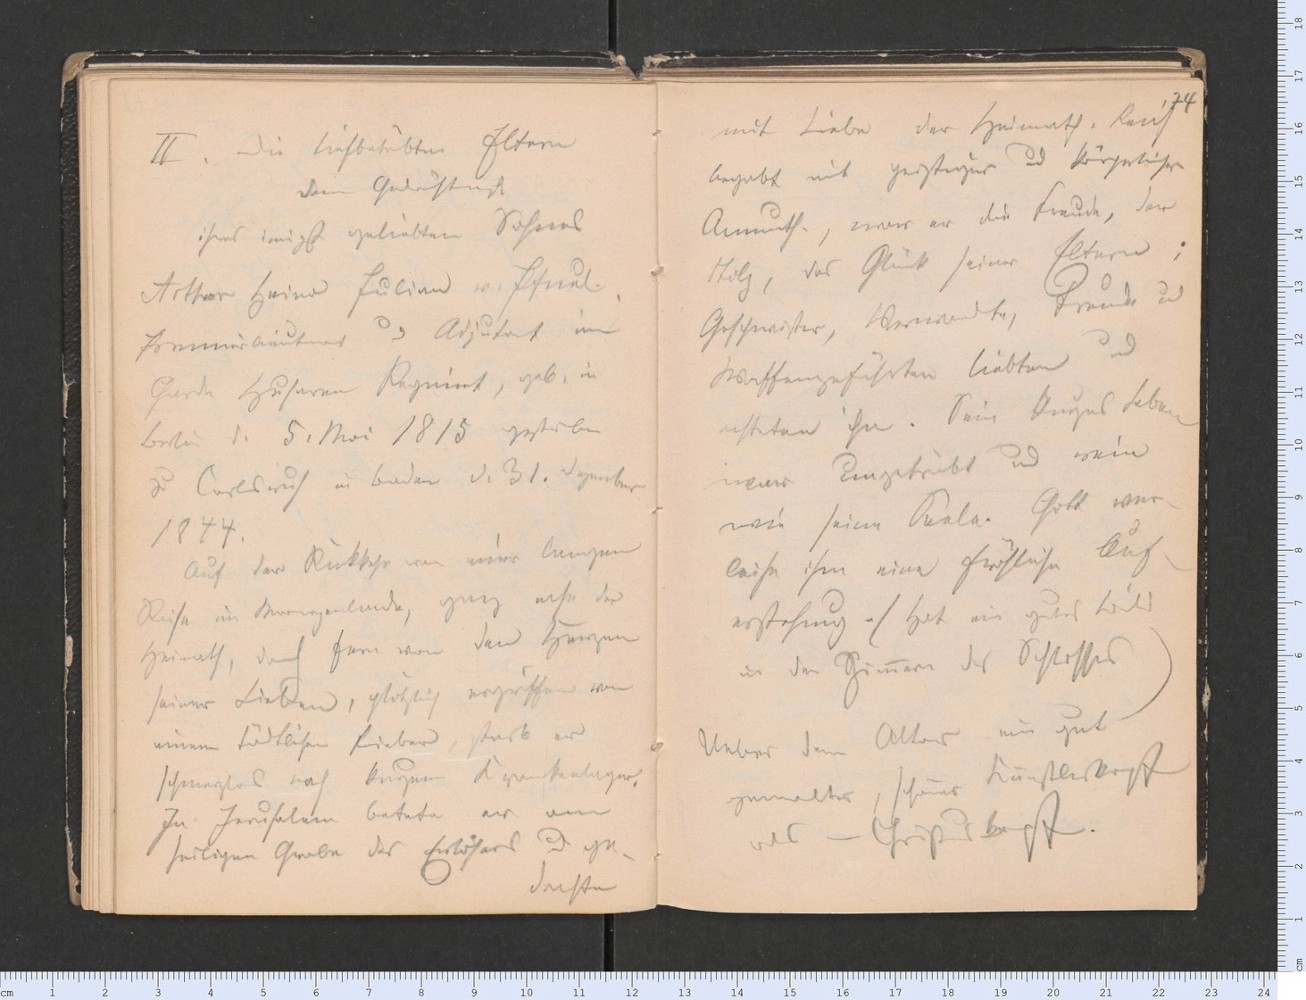 II. Die tiefbetrübten Eltern
dem Gedächtniß
ihres innigst geliebten Sohnes
Arthur Heino Julian v. Pfuel.
Premierlieutnant u Adjutant im
Garde Husaren Regiment, geb. in
Berlin d. 5. Mai 1815 gestorben
zu Carlsruh in Baden d. 31. Dezember
1844.
Auf der Rückkehr von einer langen
Reise im Morgenlande, ganz nahe der
Heimath, doch fern von den Herzen
seiner Lieben, plötzlich ergriffen von
einem tödtlichen Fieber, starb er
schmerzlos nach kurzem Krankenlager.
In Jerusalem betete er am
heiligen Grabe des Erlösers und ge-
dachte
74
mit Liebe der Heimath. Reich
begabt mit geistiger und körperlicher
Anmuth, war er die Freude, der
Stolz, das Glück seiner Eltern;
Geschwister, Verwandte, Freunde und
Waffengefährten liebten und
achteten ihn. Sein kurzes Leben
war ungetrübt und rein
wie seine Seele. Gott ver-
leihe ihm eine fröhliche Auf-
erstehung. (Hat ein gutes Bild
in den Zimmern des Schlosses)
Ueber dem Altar ein gut
gemalter, schöner Künstlerkopf
als — Christuskopf.